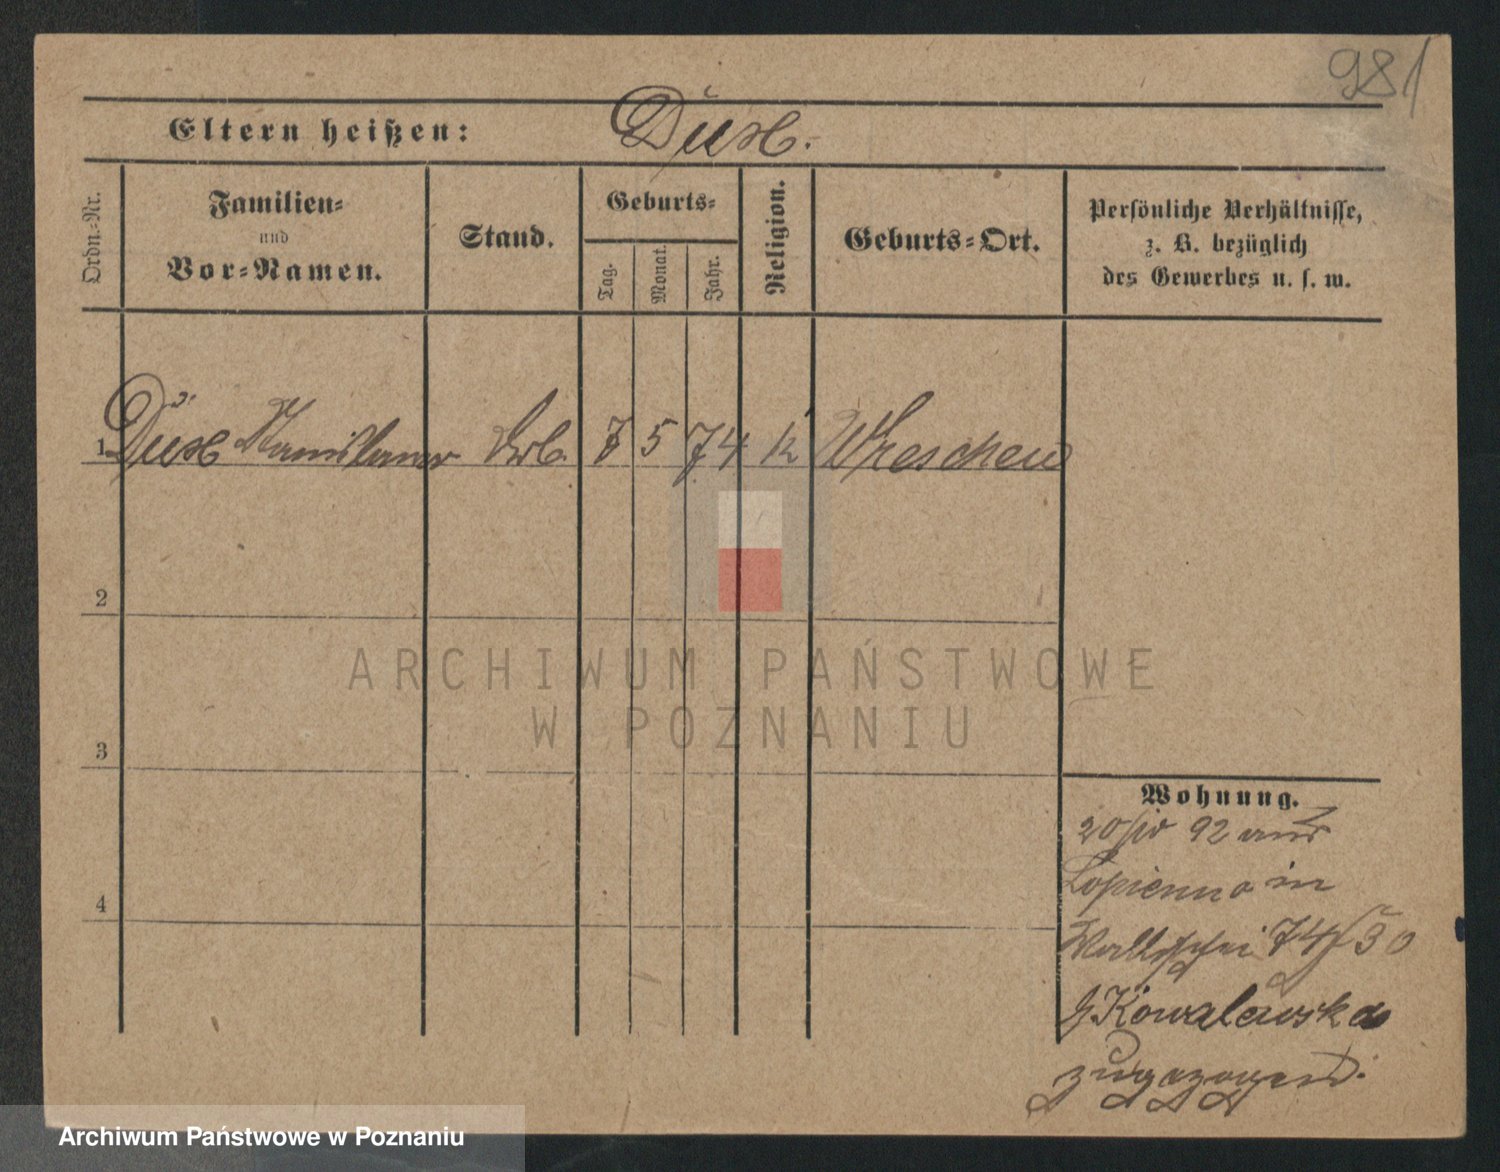 981
Eltern heißen: Düsel.
Ordn.-Nr.
Familien-
und
Vor-Namen.
Stand.
Geburts-
Tag.
Monat.
Jahr.
Religion.
Geburts-Ort.
Persönliche Verhältnisse,
z. B. bezüglich
des Gewerbes u. s. w.
1 Stanislaus Arb. 7 5 74 k Wreschen
2
3
4
Wohnung.
20/IV 92 aus
Lopienno in
Wallischei 74/30
Kowalewska
zugezogen.
ARCHIWUM PAŃSTWOWE
W POZNANIU
Archiwum Państwowe w Poznaniu